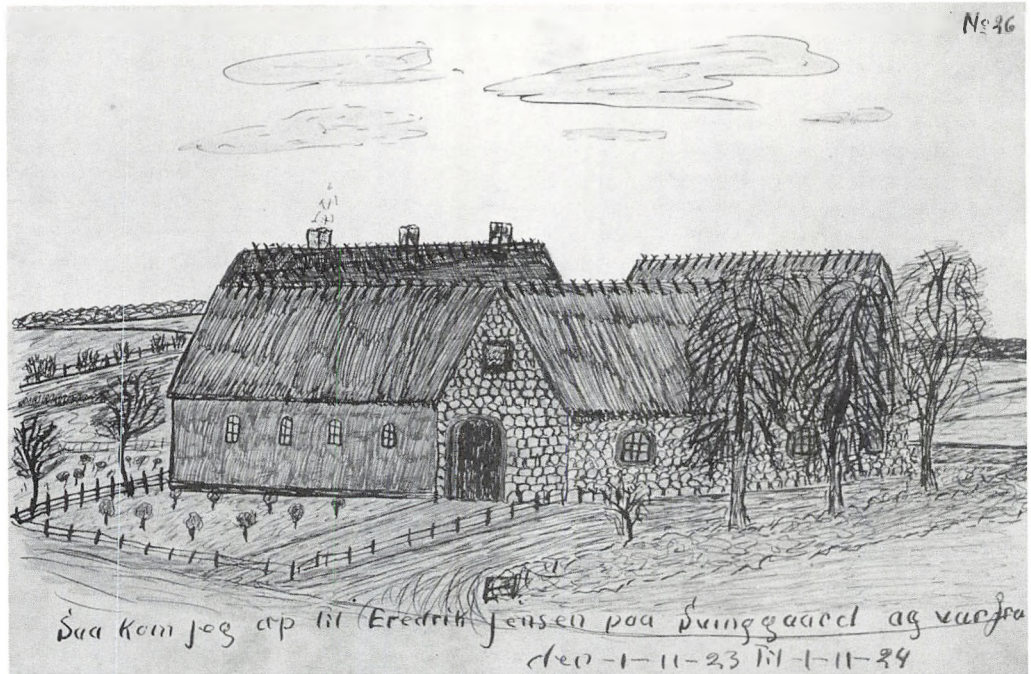 No 26
Saa kom jeg op til Eredrik Jensen paa Svinggaard og var fra
den -1-11-23 Til -1-11-24